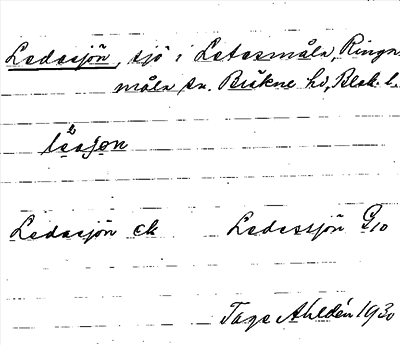 Ledasjön, sjö i Letesmåla, Ringa-
måla sn. Bräkne hd, Blek. l.
lèsjon
Ledasjön ek Ledessjön G10
Tage Ahldén 1930